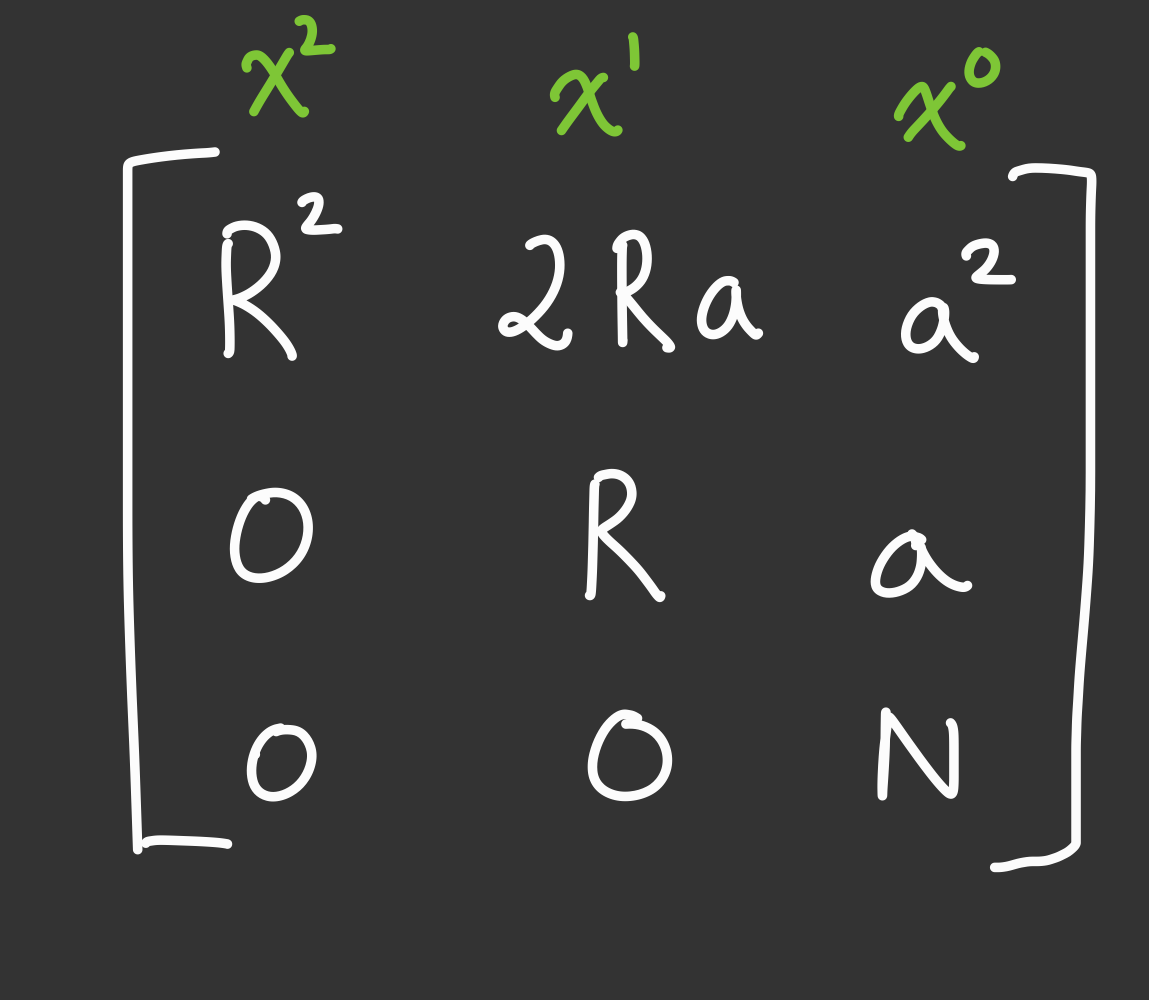 x² x¹ x⁰
R² 2Ra a²
0 R a
0 0 N